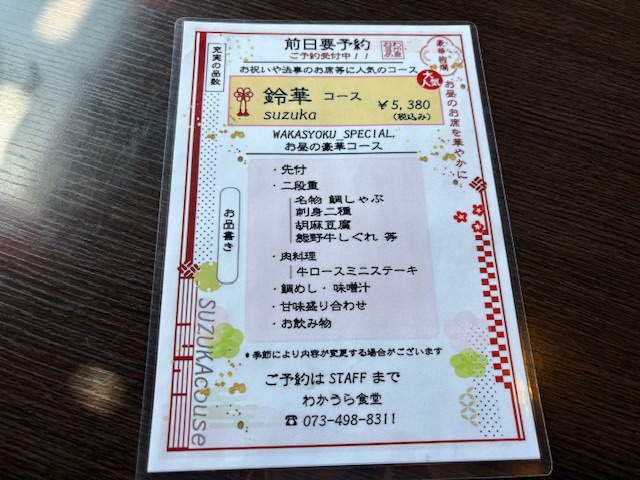 前日要予約
ご予約受付中!!
充実の品数
お祝いや法事のお席等に人気のコース
豪華絢爛
大人気
お昼のお席を華やかに
鈴華 コース
suzuka
¥5,380
(税込み)
WAKASYOKU SPECIAL.
お昼の豪華コース
お品書き
・先付
・二段重
名物 鯛しゃぶ
刺身二種
胡麻豆腐
熊野牛しぐれ 等
・肉料理
牛ロースミニステーキ
・鯛めし・味噌汁
・甘味盛り合わせ
・お飲み物
SUZUKAcouse
*季節により内容が変更する場合がございます
ご予約は STAFF まで
わかうら食堂
☎ 073-498-8311